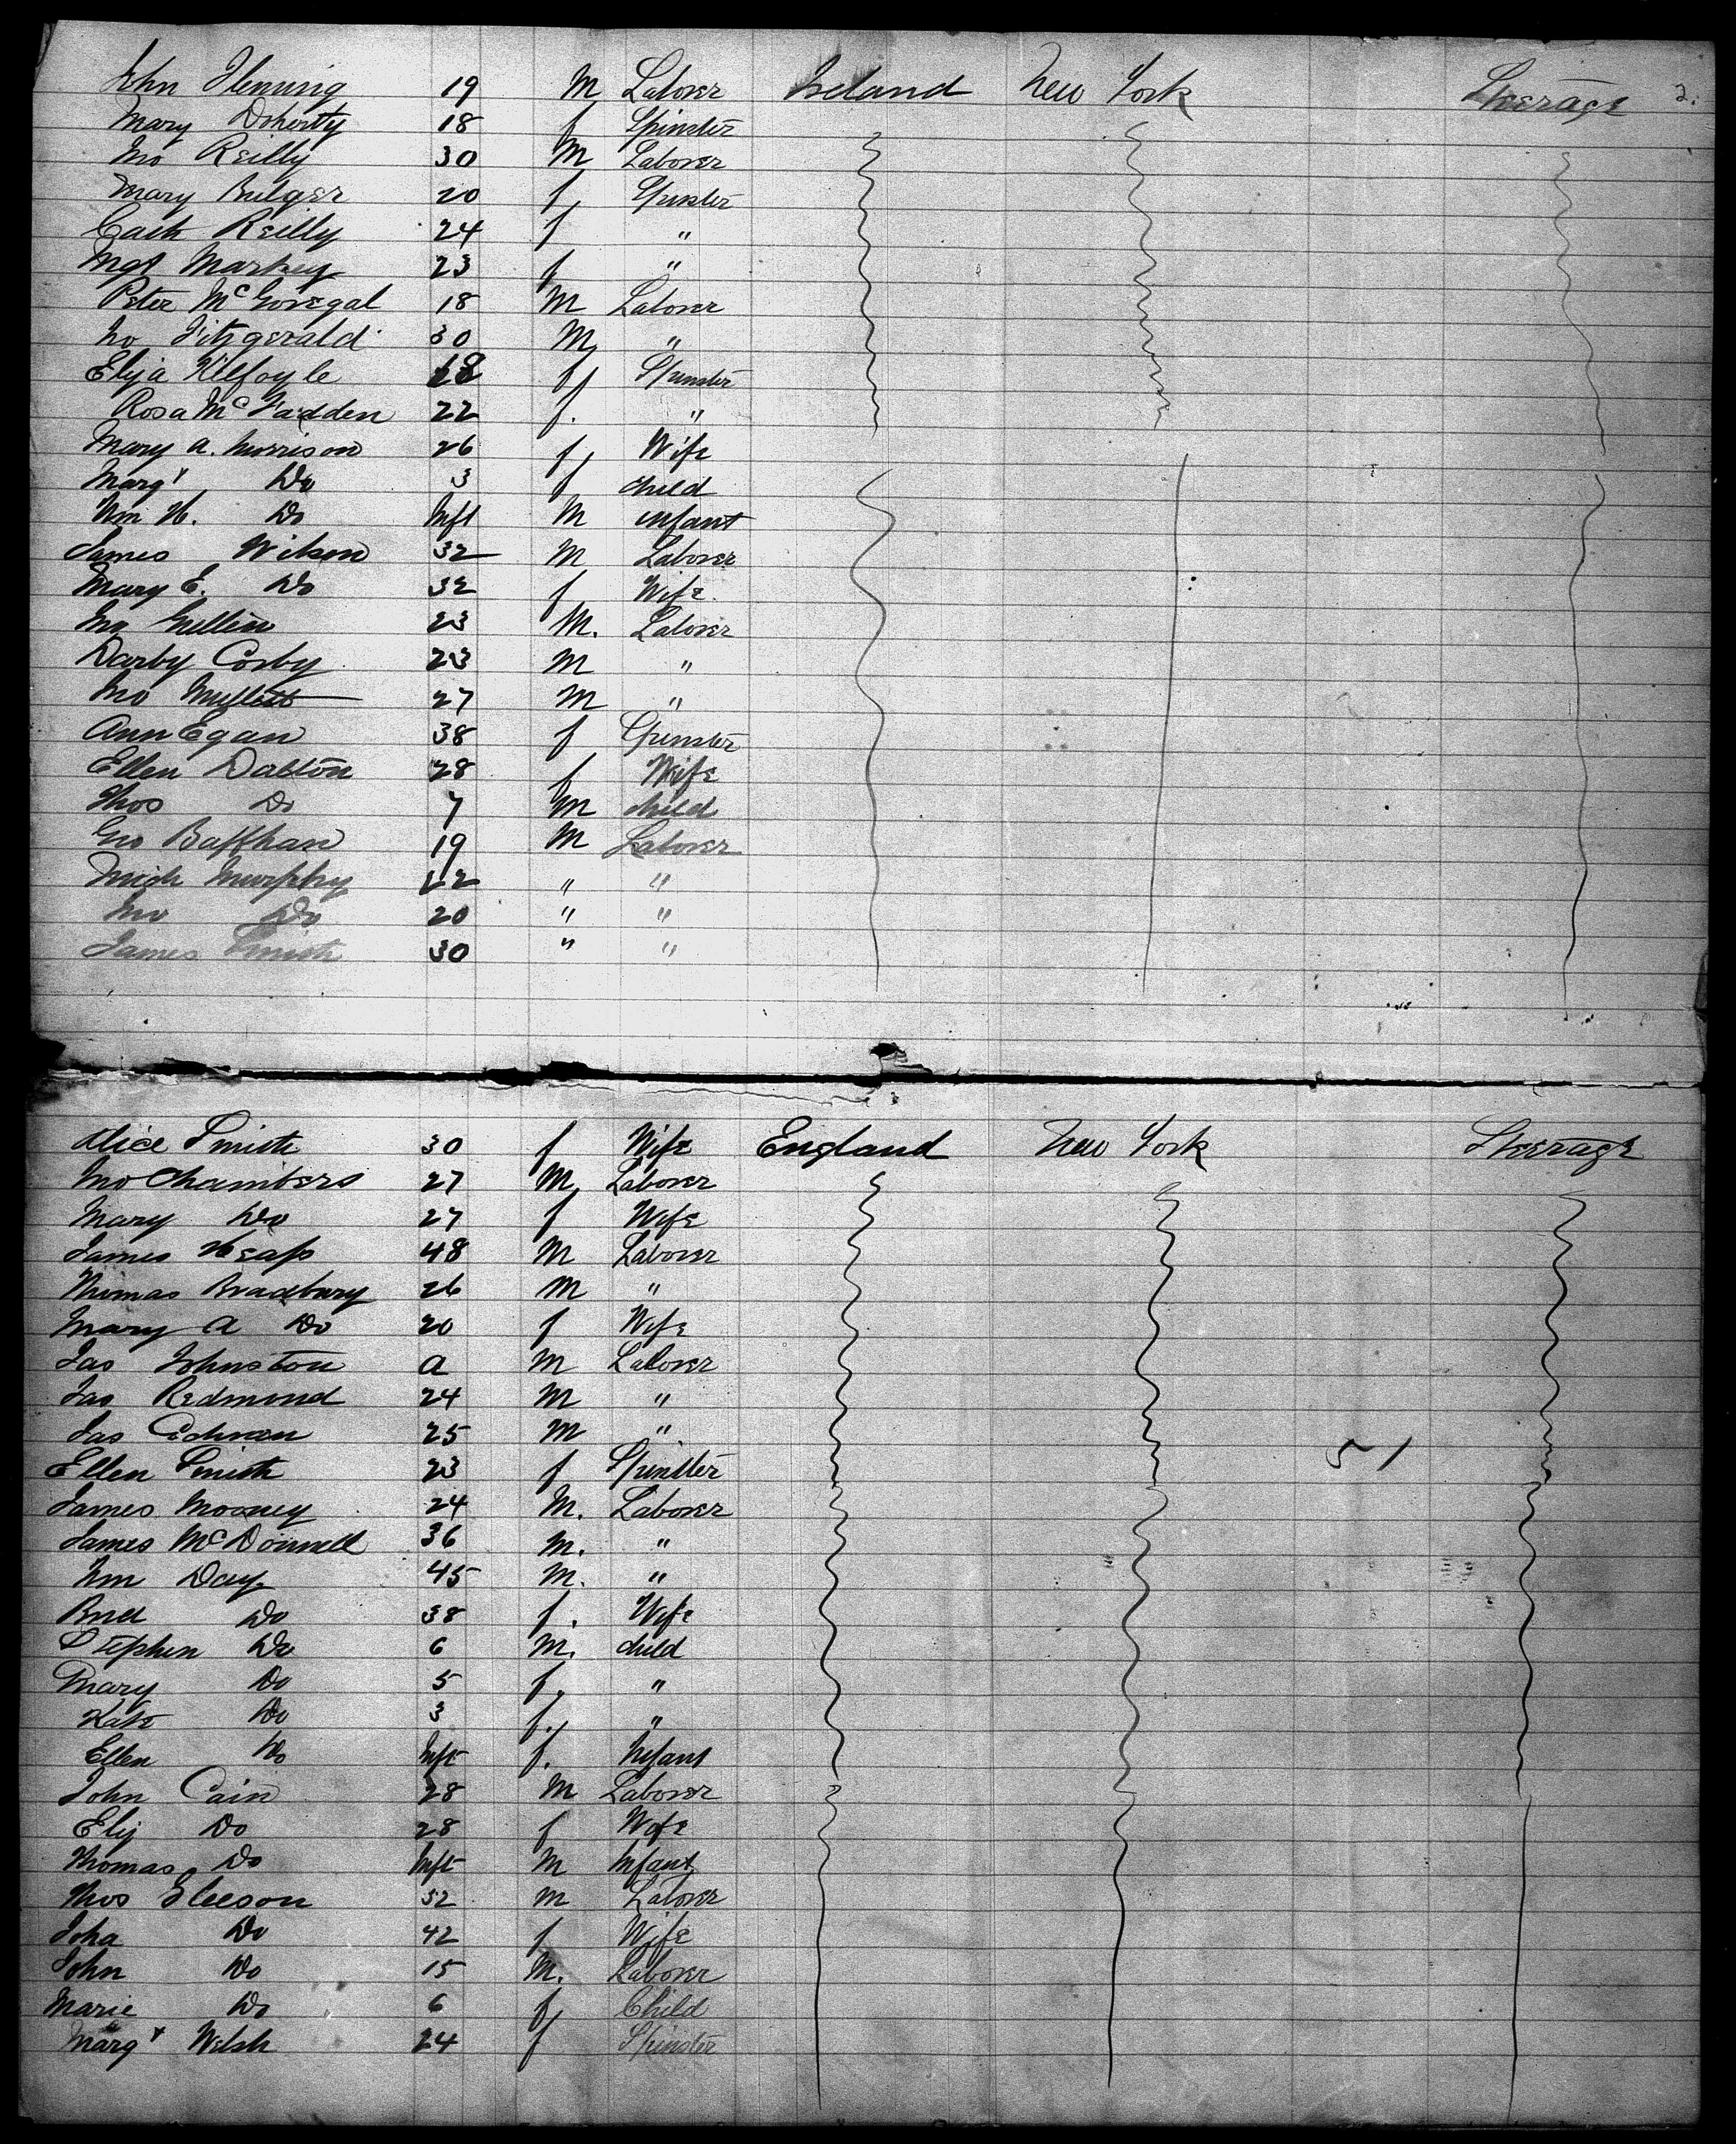 John Fleming 19 M Laborer Ireland New York Steerage 2.
Mary Doherty 18 f Spinster
Jno Reilly 30 M Laborer
Mary Bulger 20 f Spinster
Cath Reilly 24 f "
Mgt Markey 23 f "
Peter McGonegal 18 M Laborer
Jno Fitzgerald 30 M "
Eliza Kilfoyle 18 f Spinster
Rosa McFadden 22 f. "
Mary A. Morrison 26 f Wife
Margt Do 3 f child
Wm H. Do Inft M infant
James Wilson 32 M Laborer
Mary E. Do 32 f Wife
Jno 23 M. Laborer
Darby Corby 23 M "
Jno 27 M "
Ann Egan 38 f Spinster
Ellen Dalton 28 f Wife
Thos Do 7 M child
Geo 19 M Laborer
Mich Murphy 22 " "
Jno Do 20 " "
James Smith 30 " "
Alice Smith 30 f Wife England New York Steerage
Jno Chambers 27 M Laborer
Mary Do 27 f Wife
James Heap 48 M Laborer
Thomas Bradbury 26 M "
Mary A Do 20 f Wife
Jas Johnston a M Laborer
Jas Redmond 24 M "
Jas 25 M "
Ellen Smith 23 f Spinster 51
James Mooney 24 M. Laborer
James McDonnell 36 M. "
Wm Day 45 M. "
Brid Do 38 f. Wife
Stephen Do 6 M. child
Mary Do 5 f. "
Kate Do 3 f. "
Ellen Do Inft f. Infant
John Cain 28 M Laborer
Eliz Do 28 f Wife
Thomas Do Inft M Infant
Thos Gleeson 52 M Laborer
Joha Do 42 f Wife
John Do 15 M. Laborer
Marie Do 6 f Child
Margt Welsh 24 f Spinster